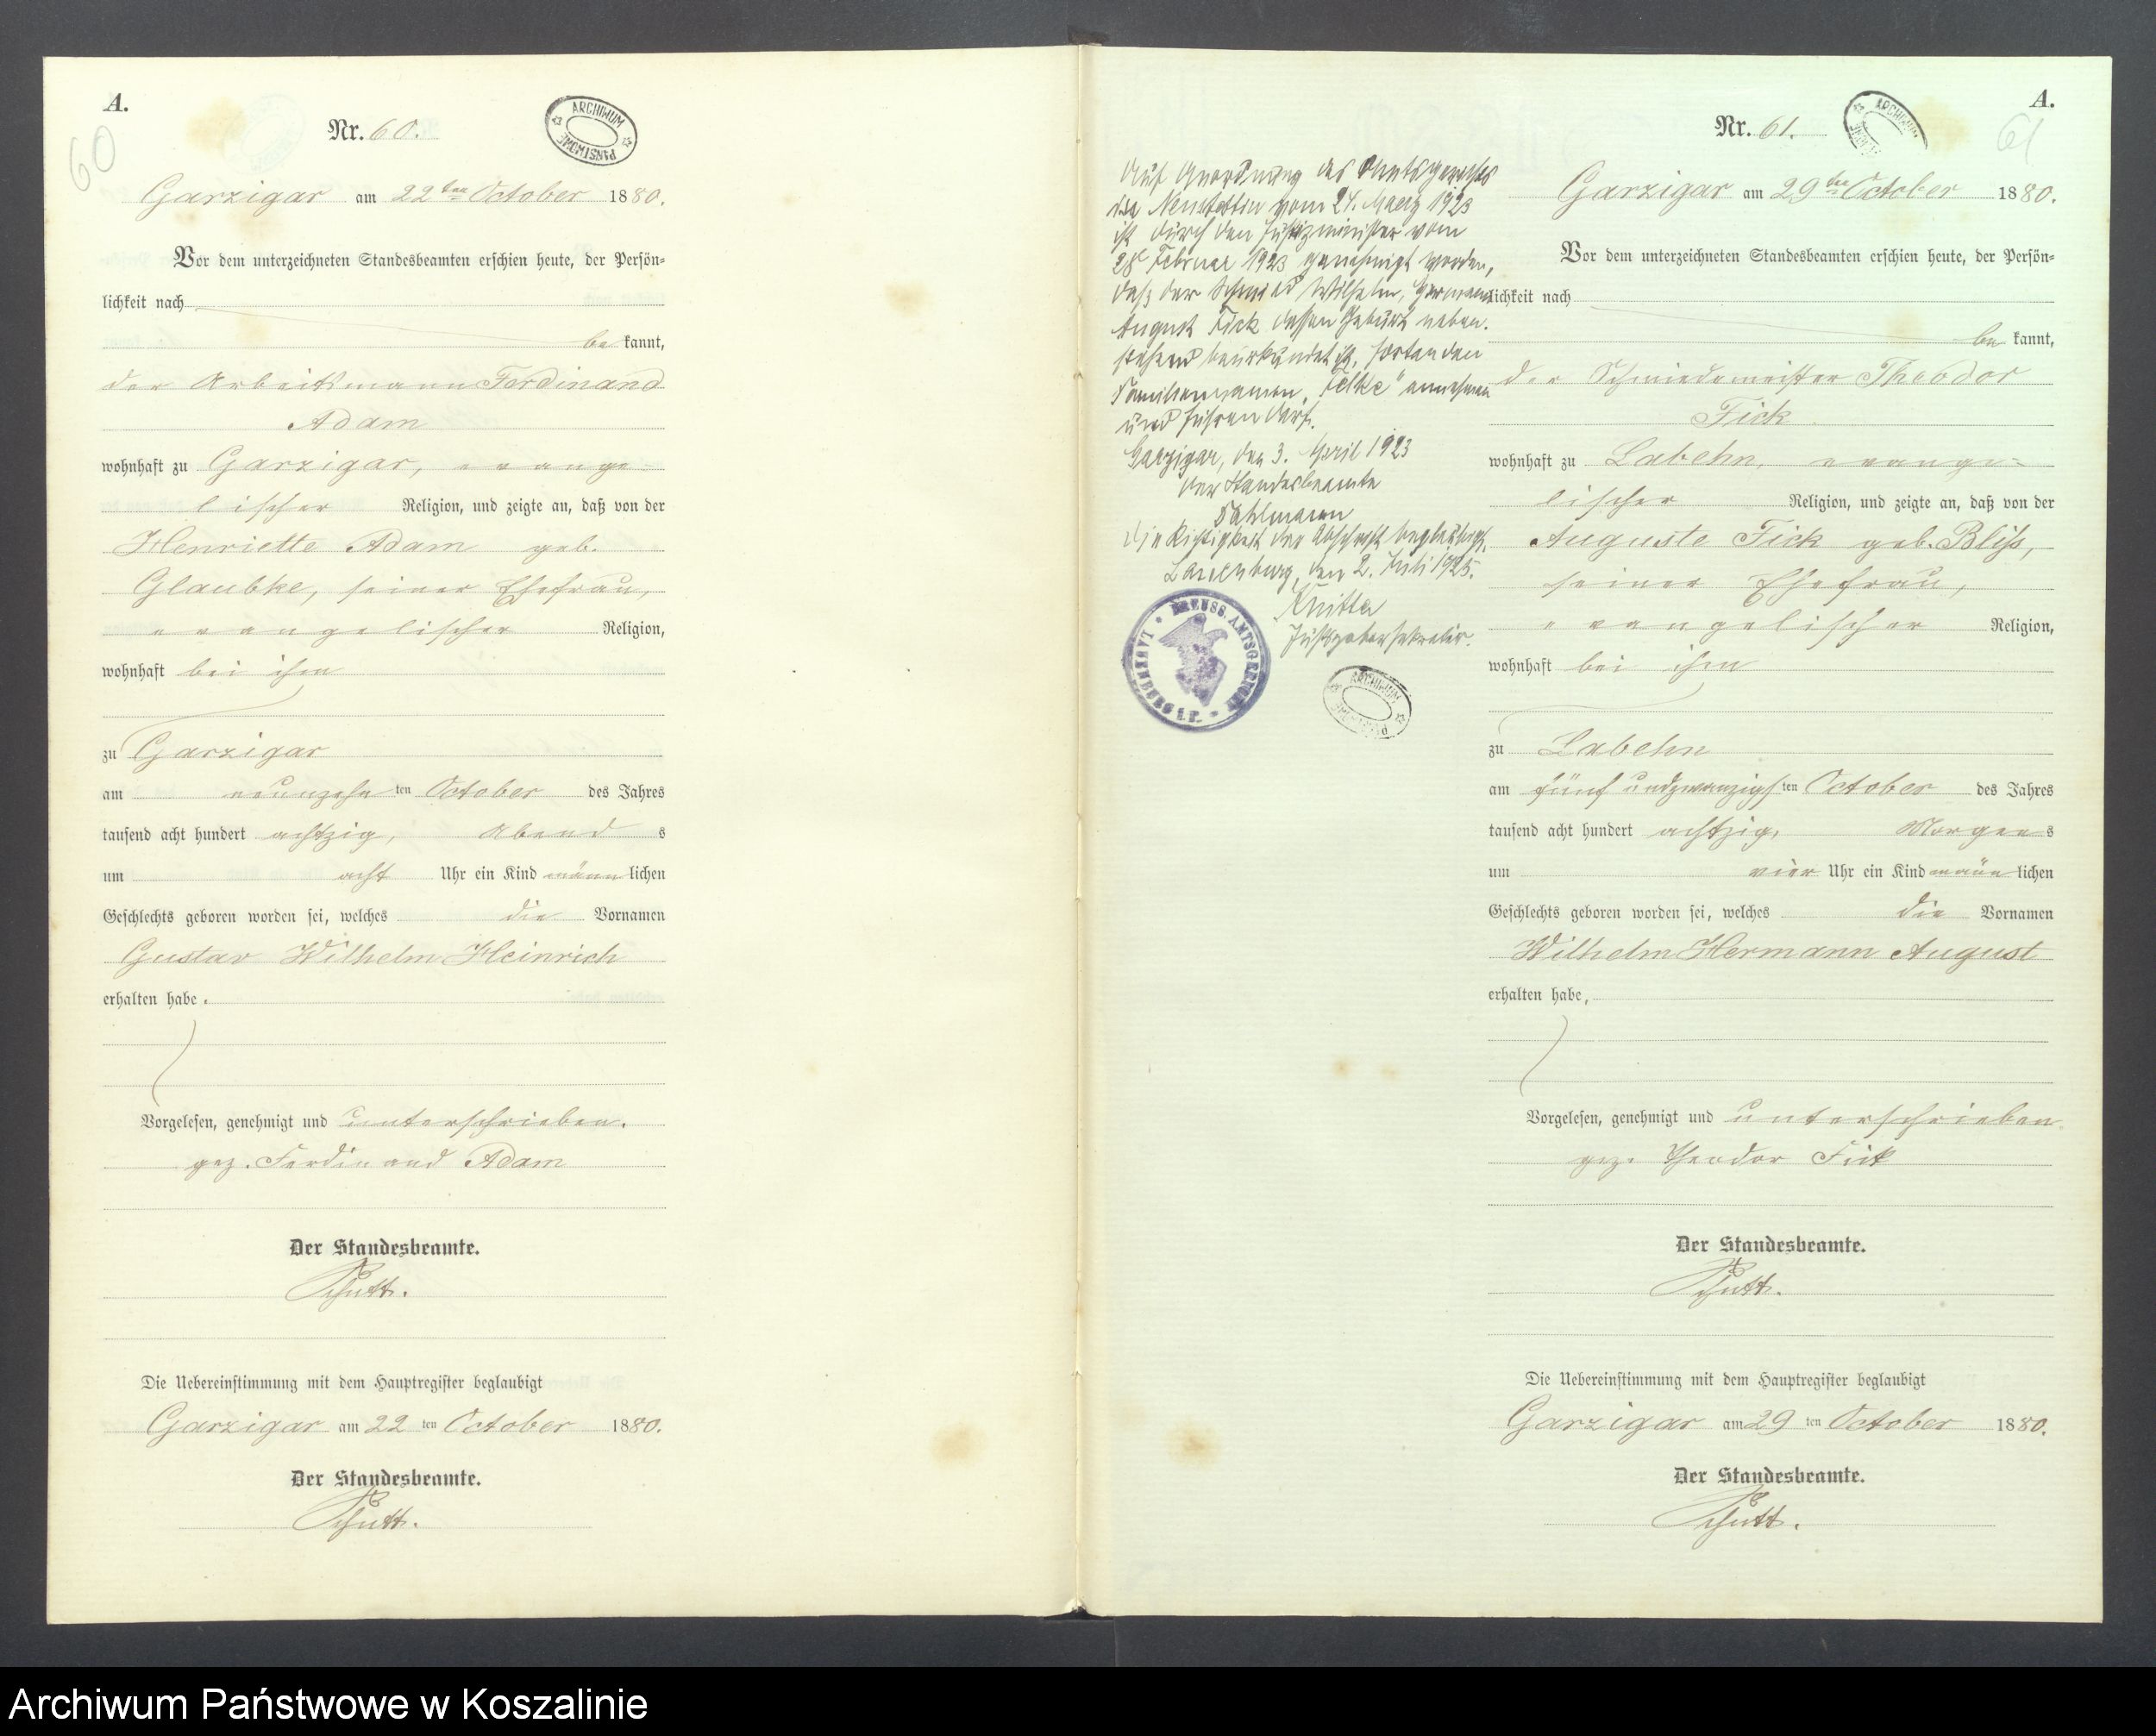 A.
60
Nr. 60.
ARCHIWUM PAŃSTWOWE
Garzigar am 22ten October 1880.
Vor dem unterzeichneten Standesbeamten erschien heute, der Persön=
lichkeit nach
be kannt,
der Arbeitsmann Ferdinand
Adam
wohnhaft zu Garzigar, evange-
lischer Religion, und zeigte an, daß von der
Henriette Adam geb.
Glaubke, seiner Ehefrau,
evangelischer Religion,
wohnhaft bei ihm
zu Garzigar
am neunzehn ten October des Jahres
tausend acht hundert achtzig, Abend s
um acht Uhr ein Kind männ lichen
Geschlechts geboren worden sei, welches die Vornamen
Gustav Wilhelm Heinrich
erhalten habe.
Vorgelesen, genehmigt und unterschrieben.
gez. Ferdinand Adam
Der Standesbeamte.
Schutt.
Die Uebereinstimmung mit dem Hauptregister beglaubigt
Garzigar am 22 ten October 1880.
Der Standesbeamte.
Schutt.
Auf Anordnung des Amtsgerichts
Neustettin vom 24. Maerz 1923
ist durch den Justizminister vom
28 Februar 1923 genehmigt worden,
daß der Schmied Wilhelm, Hermann
August Fick dessen Geburt neben-
stehend beurkundet ist, fortan den
Familiennamen „Felke" annehmen
und führen darf.
Garzigar, den 3. April 1923
Der Standesbeamte
Dahlmann
Die Richtigkeit der Abschrift beglaubigt.
Lauenburg, den 2. Juli 1925.
Knitter
Justizobersekretär.
PREUSS. AMTSGERICHT LAUENBURG i.P.
ARCHIWUM PAŃSTWOWE
A.
61
Nr. 61.
ARCHIWUM
Garzigar am 29ten October 1880.
Vor dem unterzeichneten Standesbeamten erschien heute, der Persön=
lichkeit nach
be kannt,
der Schmiedemeister Theodor
Fick
wohnhaft zu Labehn, evange=
lischer Religion, und zeigte an, daß von der
Auguste Fick geb. Bliß,
seiner Ehefrau,
evangelischer Religion,
wohnhaft bei ihm
zu Labehn
am fünfundzwanzigs ten October des Jahres
tausend acht hundert achtzig, Morgen s
um vier Uhr ein Kind männ lichen
Geschlechts geboren worden sei, welches die Vornamen
Wilhelm Hermann August
erhalten habe,
Vorgelesen, genehmigt und unterschrieben.
gez. Theodor Fick
Der Standesbeamte.
Schutt.
Die Uebereinstimmung mit dem Hauptregister beglaubigt
Garzigar am 29 ten October 1880.
Der Standesbeamte.
Schutt.
Archiwum Państwowe w Koszalinie